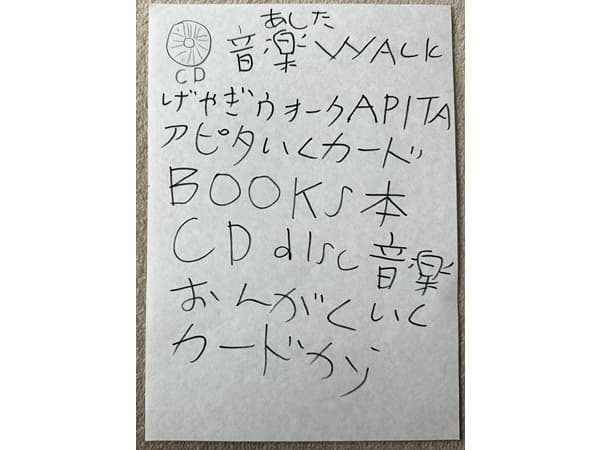 あした
CD 音楽WALK
げやぎウォークAPITA
アピタいくカード
BOOKS本
CD disc 音楽
おんがくいく
カードかぞ